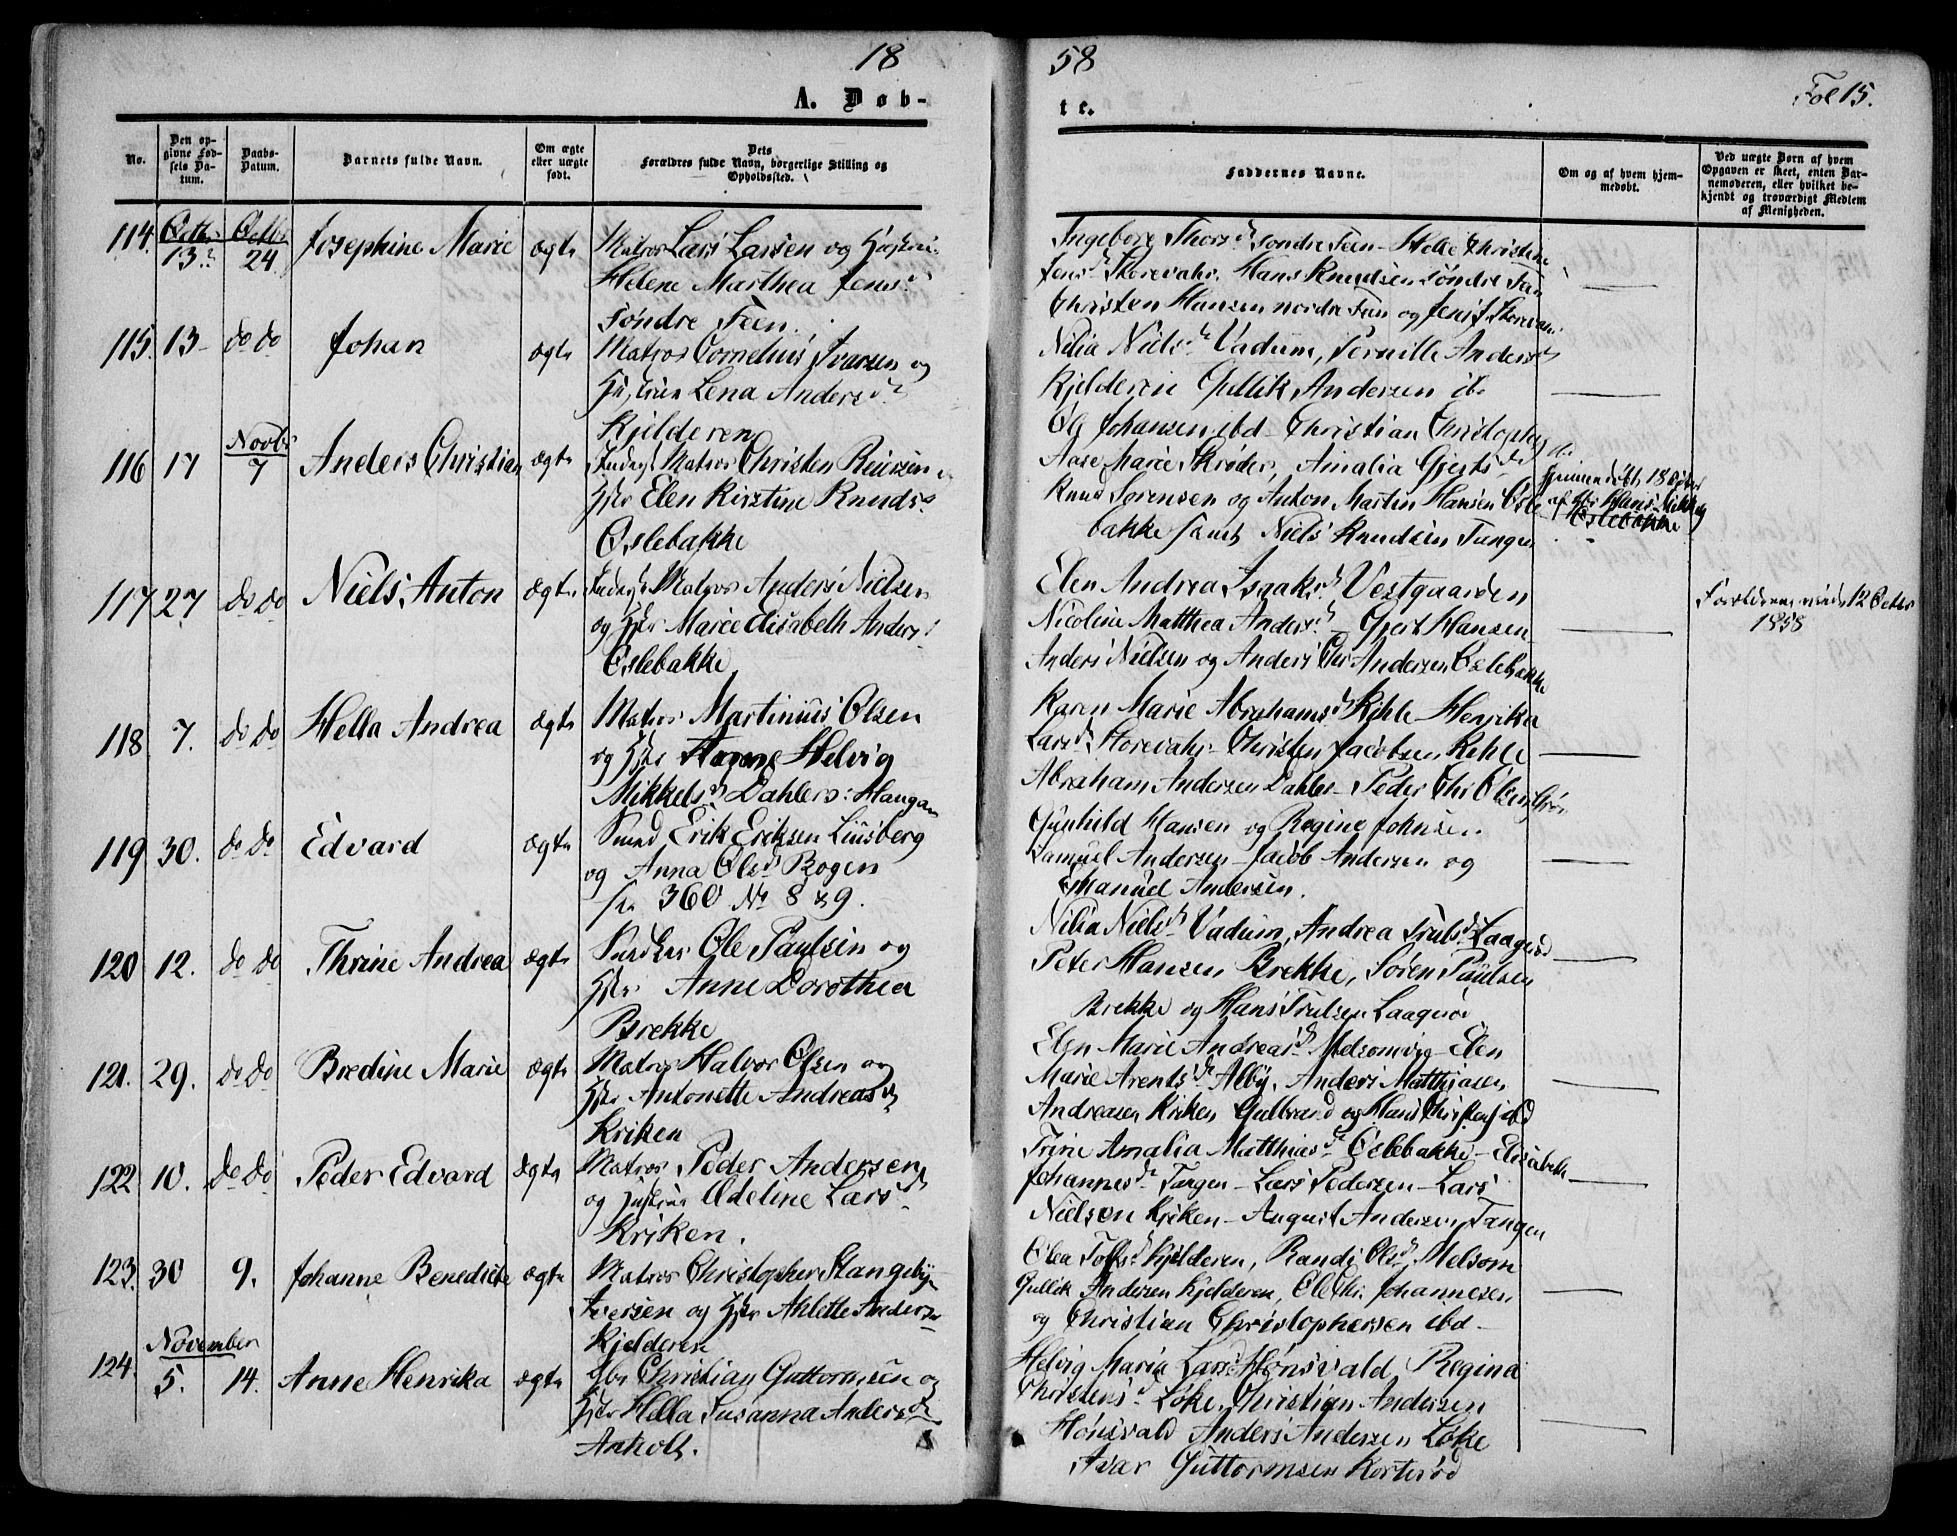 18
58
Fol 15.
A. Døb-
te.
No.
Den op-
givne Fød-
sels Da-
tum.
Daabs-
Datum.
Barnets fulde Navn.
Om ægte
eller uægte
født.
Dets
Forældres fulde Navn, borgerlige Stilling og
Opholdssted.
Faddernes Navne.
Om og af hvem hjem-
medøbt.
Ved uægte Børn af hvem
Opgaven er skeet, enten Bar-
nemoderen, eller hvilket be-
kjendt og troværdigt Medlem
af Menigheden.
114. Octbr 13. Octbr 24 Josephine Marie ægte Matros Lars Larsen og
Helene Marthea Jensd.
Søndre Feen
Ingeborg Thorsd. søndre Feen - Helle Christine
Jensd. Storevahr. Hans Knudsen søndre Fen
Christen Hansen nordre Fen og Jens Storevar
115. 13 do do Johan ægte Matros Cornelius Ivarsen og
Hustru Lena Andersd.
Kjelderen
Nilia Nielsd. Vadum, Pernille Andersd.
Kjelderen Gullik Andersen ib.
Ole Johansen ibd - Christian Christophers
116 17 Novbr 7 Anders Christian ægte Matros Christen
Hstr Elen Kirstine Knudsd.
Oslebakke
Aase Marie Skrøder, Amalia Gjertsd.
Knud Sørensen og Anton Martin Hansen Osle
bakke samt Niels Knudsen Tangen
Hjemmedøbt 18 Octbr
af Hans
Oslebakke
117 27 do do Niels Anton ægte Matros Anders Nielsen
og Hstr Marie Elisabeth Anders
Oslebakke
Elen Andrea Isaksd. Vestgaarden
Nicoline Matthea Andersd. Gjert Hansen
Anders Nielsen og Anders Chr Andersen Oslebakke
Forældrene viede 12 Octbr
1858
118 7. do do Hella Andrea ægte Matros Martinius Olsen
og Hstr Helvig
Mikkelsd. Dahlers: Haugan
Karen Marie Abrahamsd. Kihle - Henrika
Larsd. Storevahr - Christen Jacobsen Kihle
Abraham Andersen Dahler - Peder Chr Olsen
119 30. do do Edvard ægte Smed Erik Eriksen Liusberg
og Anna Olsd. Bogen
360 No 8 & 9.
Gunhild Hansen og Regine Johnsen
Samuel Andersen - Jacob Andersen og
Emanuel Andersen.
120 12. do do Thrine Andrea ægte Ole Paulsen og
Hstr Anne Dorothea
Brekke
Nilia Nielsd. Vadum, Andrea Trulsd. Laagerød
Peter Hansen Brekke, Søren Paulsen
Brekke og Hans Trulsen Laagerød
121. 29. do do Bredine Marie ægte Matros Halvor Olsen og
Hstr Antonette Andreasd.
Kriken
Elen Marie Andreasd. Melsomvig - Elen
Marie Arentsd. Alby, Anders Matthiasen
Andreasen Kriken Gulbrand og Hans ibid
122 10. do do Peder Edvard ægte Matros Peder Andersen
og Hustru Adeline Larsd.
Kriken.
Trine Amalia Matthiasd. Oslebakke - Elisabeth
Johannesd. Tangen - Lars Pedersen - Lars
Nielsen Kriken - August Andersen Tangen
123. 30 9. Johanne Benedicte ægte Matros Christopher Stangeby
Iversen og Hstr Ahlette Anders
Kjelderen
Olea Tolfsd. Kjelderen, Randi Olsd. Melsom
Gullik Andersen Kjelderen, Ole Chr. Johannesen
og Christian Christophersen ibd -
124. November 5. 14. Anne Henrika ægte Christian Guttormsen og
Hstr Hella Susanna Andersd.
Anholt.
Helvig Maria Larsd. Hønsvald Regina
Christensd. Løke, Christian Andersen
Hønsvald Anders Andersen Løke
Ivar Guttormsen Korterød